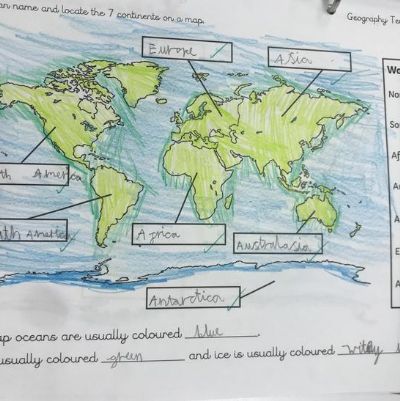 an name and locate the 7 continents on a map. Geography Te
Europe Asia
Wo
No
So
Af
th America
A
th America Africa Australasia
E
A
Antarctica
ap oceans are usually coloured blue.
usually coloured green and ice is usually coloured